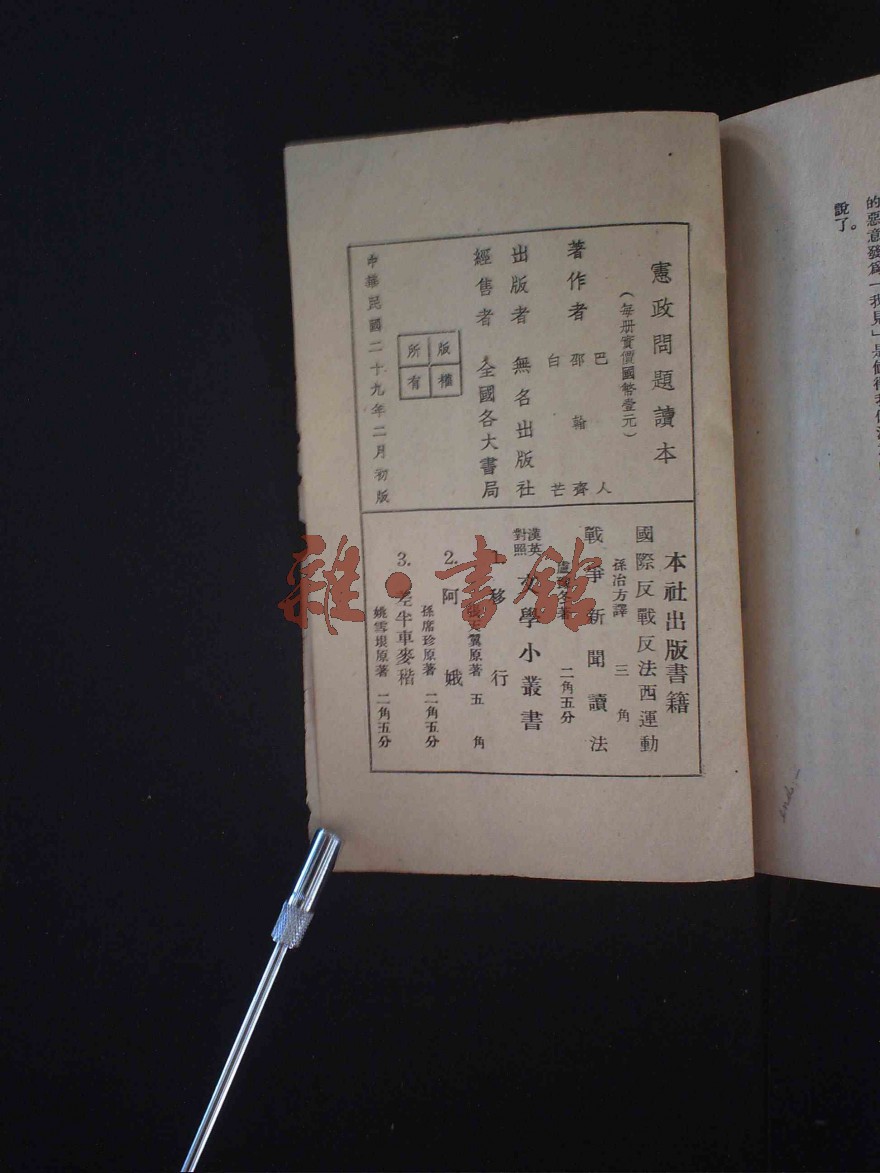 憲政問題讀本
(每册實價國幣壹元)
著作者
巴人
邵翰齊
白芒
出版者 無名出版社
經售者 全國各大書局
版權所有
中華民國二十九年二月初版
本社出版書籍
國際反戰反法西運動
孫治方譯 三角
戰爭新聞讀法
二角五分
漢英對照 文學小叢書
1. 移行
張天翼原著 五角
2. 阿娥
孫席珍原著 二角五分
3. 差半車麥稭
姚雪垠原著 二角五分
說了。
雜·書館